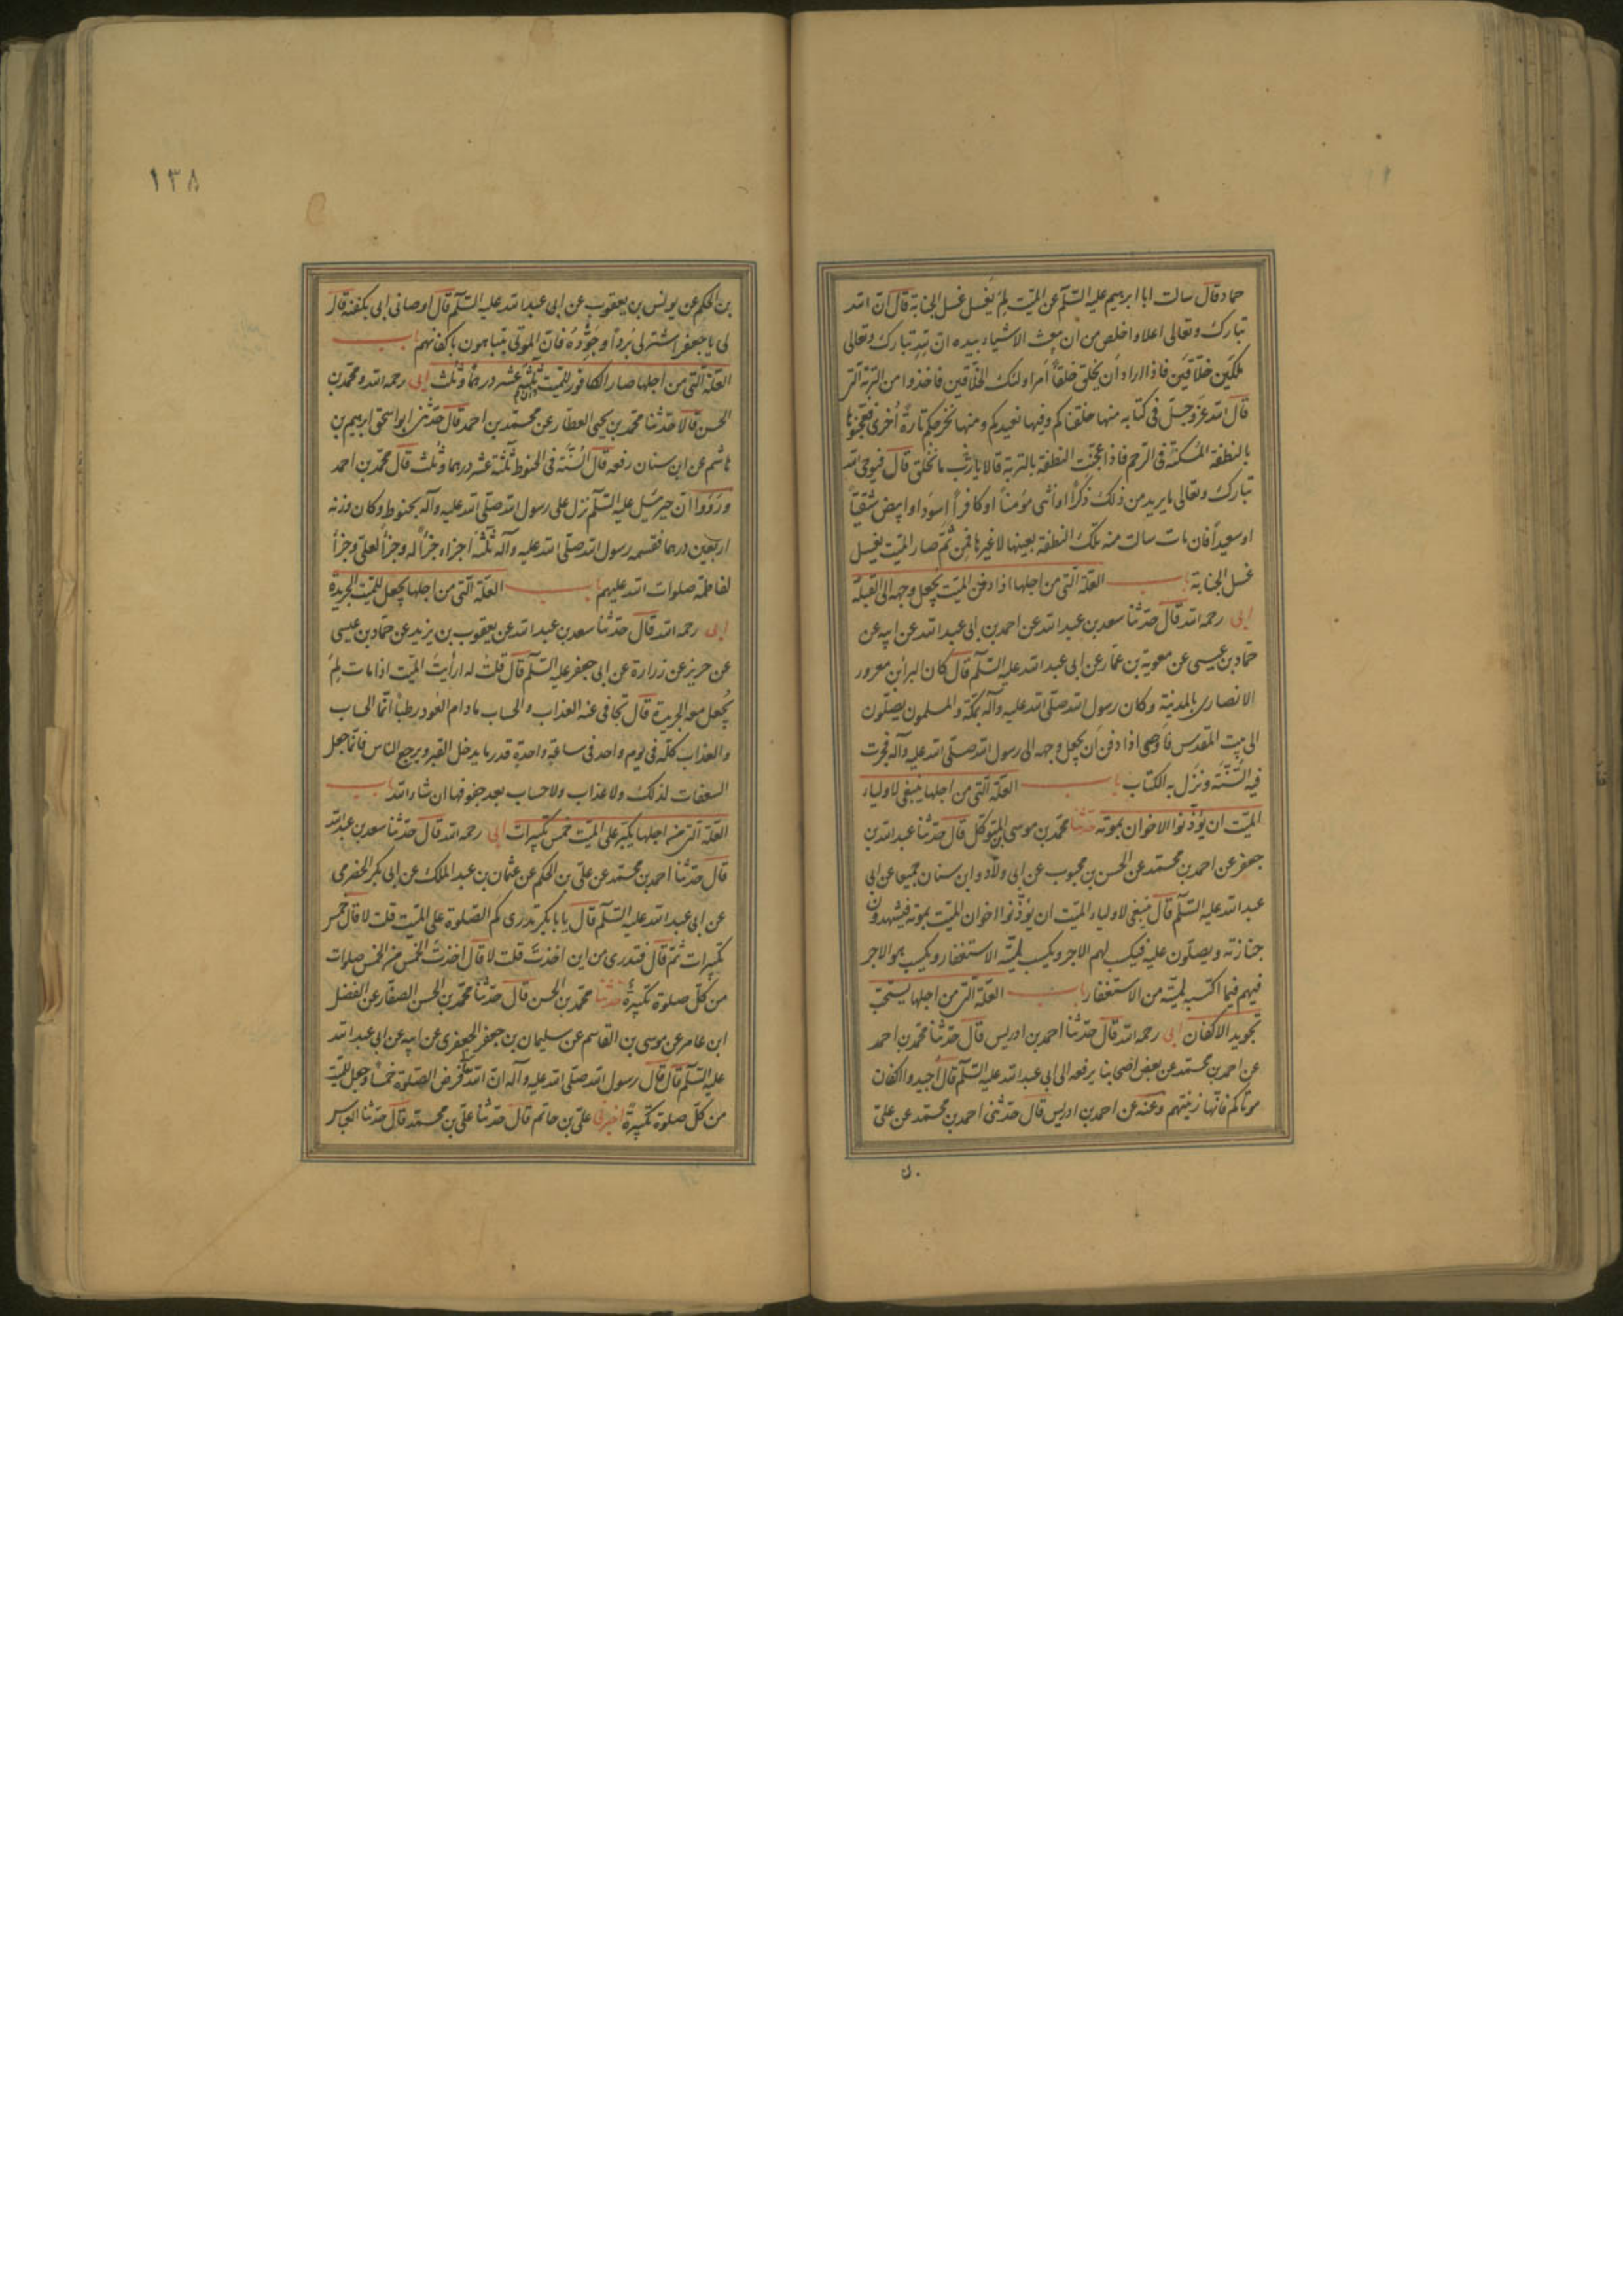 حماد قال سالت ابا ابرهيم عليه السّلم عن الميّت لِمَ يغسل غسل الجنابة قال انّ الله
تبارك وتعالى اعلا واخلص من ان يبعث الاشياء بيده انّ لله تبارك وتعالى
ملكين خلّاقين فاذا اراد ان يخلق خلقاً امر اولئك الخلّاقين فاخذوا من التربة التى
قال الله عزّ وجلّ فى كتابه منها خلقناكم وفيها نعيدكم ومنها نخرجكم تارةً اُخرى فعجنوها
بالنطفة المُسكنة فى الرحم فاذا عجنت النطفة بالتربة قالا يا ربّ ما نخلق قال فيوحى الله
تبارك وتعالى ما يريد من ذلك ذكراً او انثى مؤمناً او كافراً اسود او ابيض شقيّاً
او سعيداً فان مات سالت منه تلك النطفة بعينها لا غيرها فمن ثمّ صار الميّت يغسل
غسل الجنابة باب العلّة التى من اجلها اذا دفن الميّت يجعل وجهه الى القبلة
ابى رحمه الله قال حدّثنا سعد بن عبد الله عن احمد بن ابى عبد الله عن ابيه عن
حمّاد بن عيسى عن معوية بن عمّار عن ابى عبد الله عليه السّلم قال كان البراء بن معرور
الانصارى بالمدينة وكان رسول الله صلّى الله عليه وآله بمكّة والمسلمون يصلّون
الى بيت المقدس فاوصى اذا دفن ان يجعل وجهه الى رسول الله صلّى الله عليه وآله فجرت
فيه السُّنّة ونزل به الكتاب باب العلّة التى من اجلها ينبغى لاولياء
الميّت ان يُؤذنوا الاخوان بموته حدّثنا محمّد بن موسى بن المتوكّل قال حدّثنا عبد الله بن
جعفر عن احمد بن محمّد عن الحسن بن محبوب عن ابى ولّاد وابن سنان جميعا عن ابى
عبد الله عليه السّلم قال ينبغى لاولياء الميّت ان يُؤذنوا اخوان الميّت بموته فيشهدون
جنازته ويصلّون عليه فيكسب لهم الاجر ويكسب لميّته الاستغفار ويكسب هو الاجر
فيهم فيما اكتسب لميّته من الاستغفار باب العلّة التى من اجلها يستحبّ
تجويد الاكفان ابى رحمه الله قال حدّثنا احمد بن ادريس قال حدّثنا محمّد بن احمد
عن احمد بن محمّد عن بعض اصحابنا يرفعه الى ابى عبد الله عليه السّلم قال اجيدوا اكفان
موتاكم فانّها زينتهم وعنه عن احمد بن ادريس قال حدّثنى احمد بن محمّد عن علىّ
١٣٨
بن الحكم عن يونس بن يعقوب عن ابى عبد الله عليه السّلم قال اوصانى ابى بكفنه قال
لى يا جعفر اشتر لى بُرداً وجوّدهُ فانّ الموتى يتباهون باكفانهم باب
العلّة الّتى من اجلها صار الكافور للميّت ثلثة عشر درهماً وثلث ابى رحمه الله ومحمّد بن
الحسن قالا حدّثنا محمّد بن يحيى العطّار عن محمّد بن احمد قال حدّثنى ابو اسحق ابرهيم بن
هاشم عن ابن سنان رفعه قال السُّنّة فى الحنوط ثلثة عشر درهما وثُلُث قال محمّد بن احمد
ورَوَوا انّ جبرئيل عليه السّلم نزل على رسول الله صلّى الله عليه وآله بحنوط وكان وزنه
اربعين درهما فقسمه رسول الله صلّى الله عليه وآله ثلثة اجزاء جزءاً له وجزءاً لعلىّ وجزءاً
لفاطمة صلوات الله عليهم باب العلّة الّتى من اجلها يجعل للميّت الجريدة
ابى رحمه الله قال حدّثنا سعد بن عبد الله عن يعقوب بن يزيد عن حمّاد بن عيسى
عن حريز عن زرارة عن ابى جعفر عليه السّلم قال قلت له ارأيت الميّت اذا مات لِمَ
يُجعل معه الجريدة قال تجافى عنه العذاب والحساب مادام العُود رطباً انّما الحساب
والعذاب كلّه فى يومٍ واحد فى ساعةٍ واحدةٍ قدر ما يدخل القبر ويرجع الناس فانّما جعل
السعفات لذلك ولا عذاب ولا حساب بعد جفوفها ان شاء الله باب
العلّة التى من اجلها يكبّر على الميّت خمس تكبيرات ابى رحمه الله قال حدّثنا سعد بن عبد الله
قال حدّثنا احمد بن محمّد عن علىّ بن الحكم عن عثمان بن عبد الملك عن ابى بكر الحضرمى
عن ابى عبد الله عليه السّلم قال يا با بكر تدرى كم الصّلوة على الميّت قلت لا قال خمس
تكبيرات ثمّ قال فتدرى من اين اخذت قلت لا قال اخذت الخمس من الخمس صلوات
من كلّ صلوة تكبيرةٌ حدّثنا محمّد بن الحسن قال حدّثنا محمّد بن الحسن الصفّار عن الفضل
ابن عامر عن موسى بن القاسم عن سليمان بن جعفر الجعفرى عن ابيه عن ابى عبد الله
عليه السّلم قال قال رسول الله صلّى الله عليه وآله انّ الله فرض الصّلوة خمساً وجعل للميّت
من كلّ صلوة تكبيرةً اخبرنى علىّ بن حاتم قال حدّثنا علىّ بن محمّد قال حدّثنا العباس